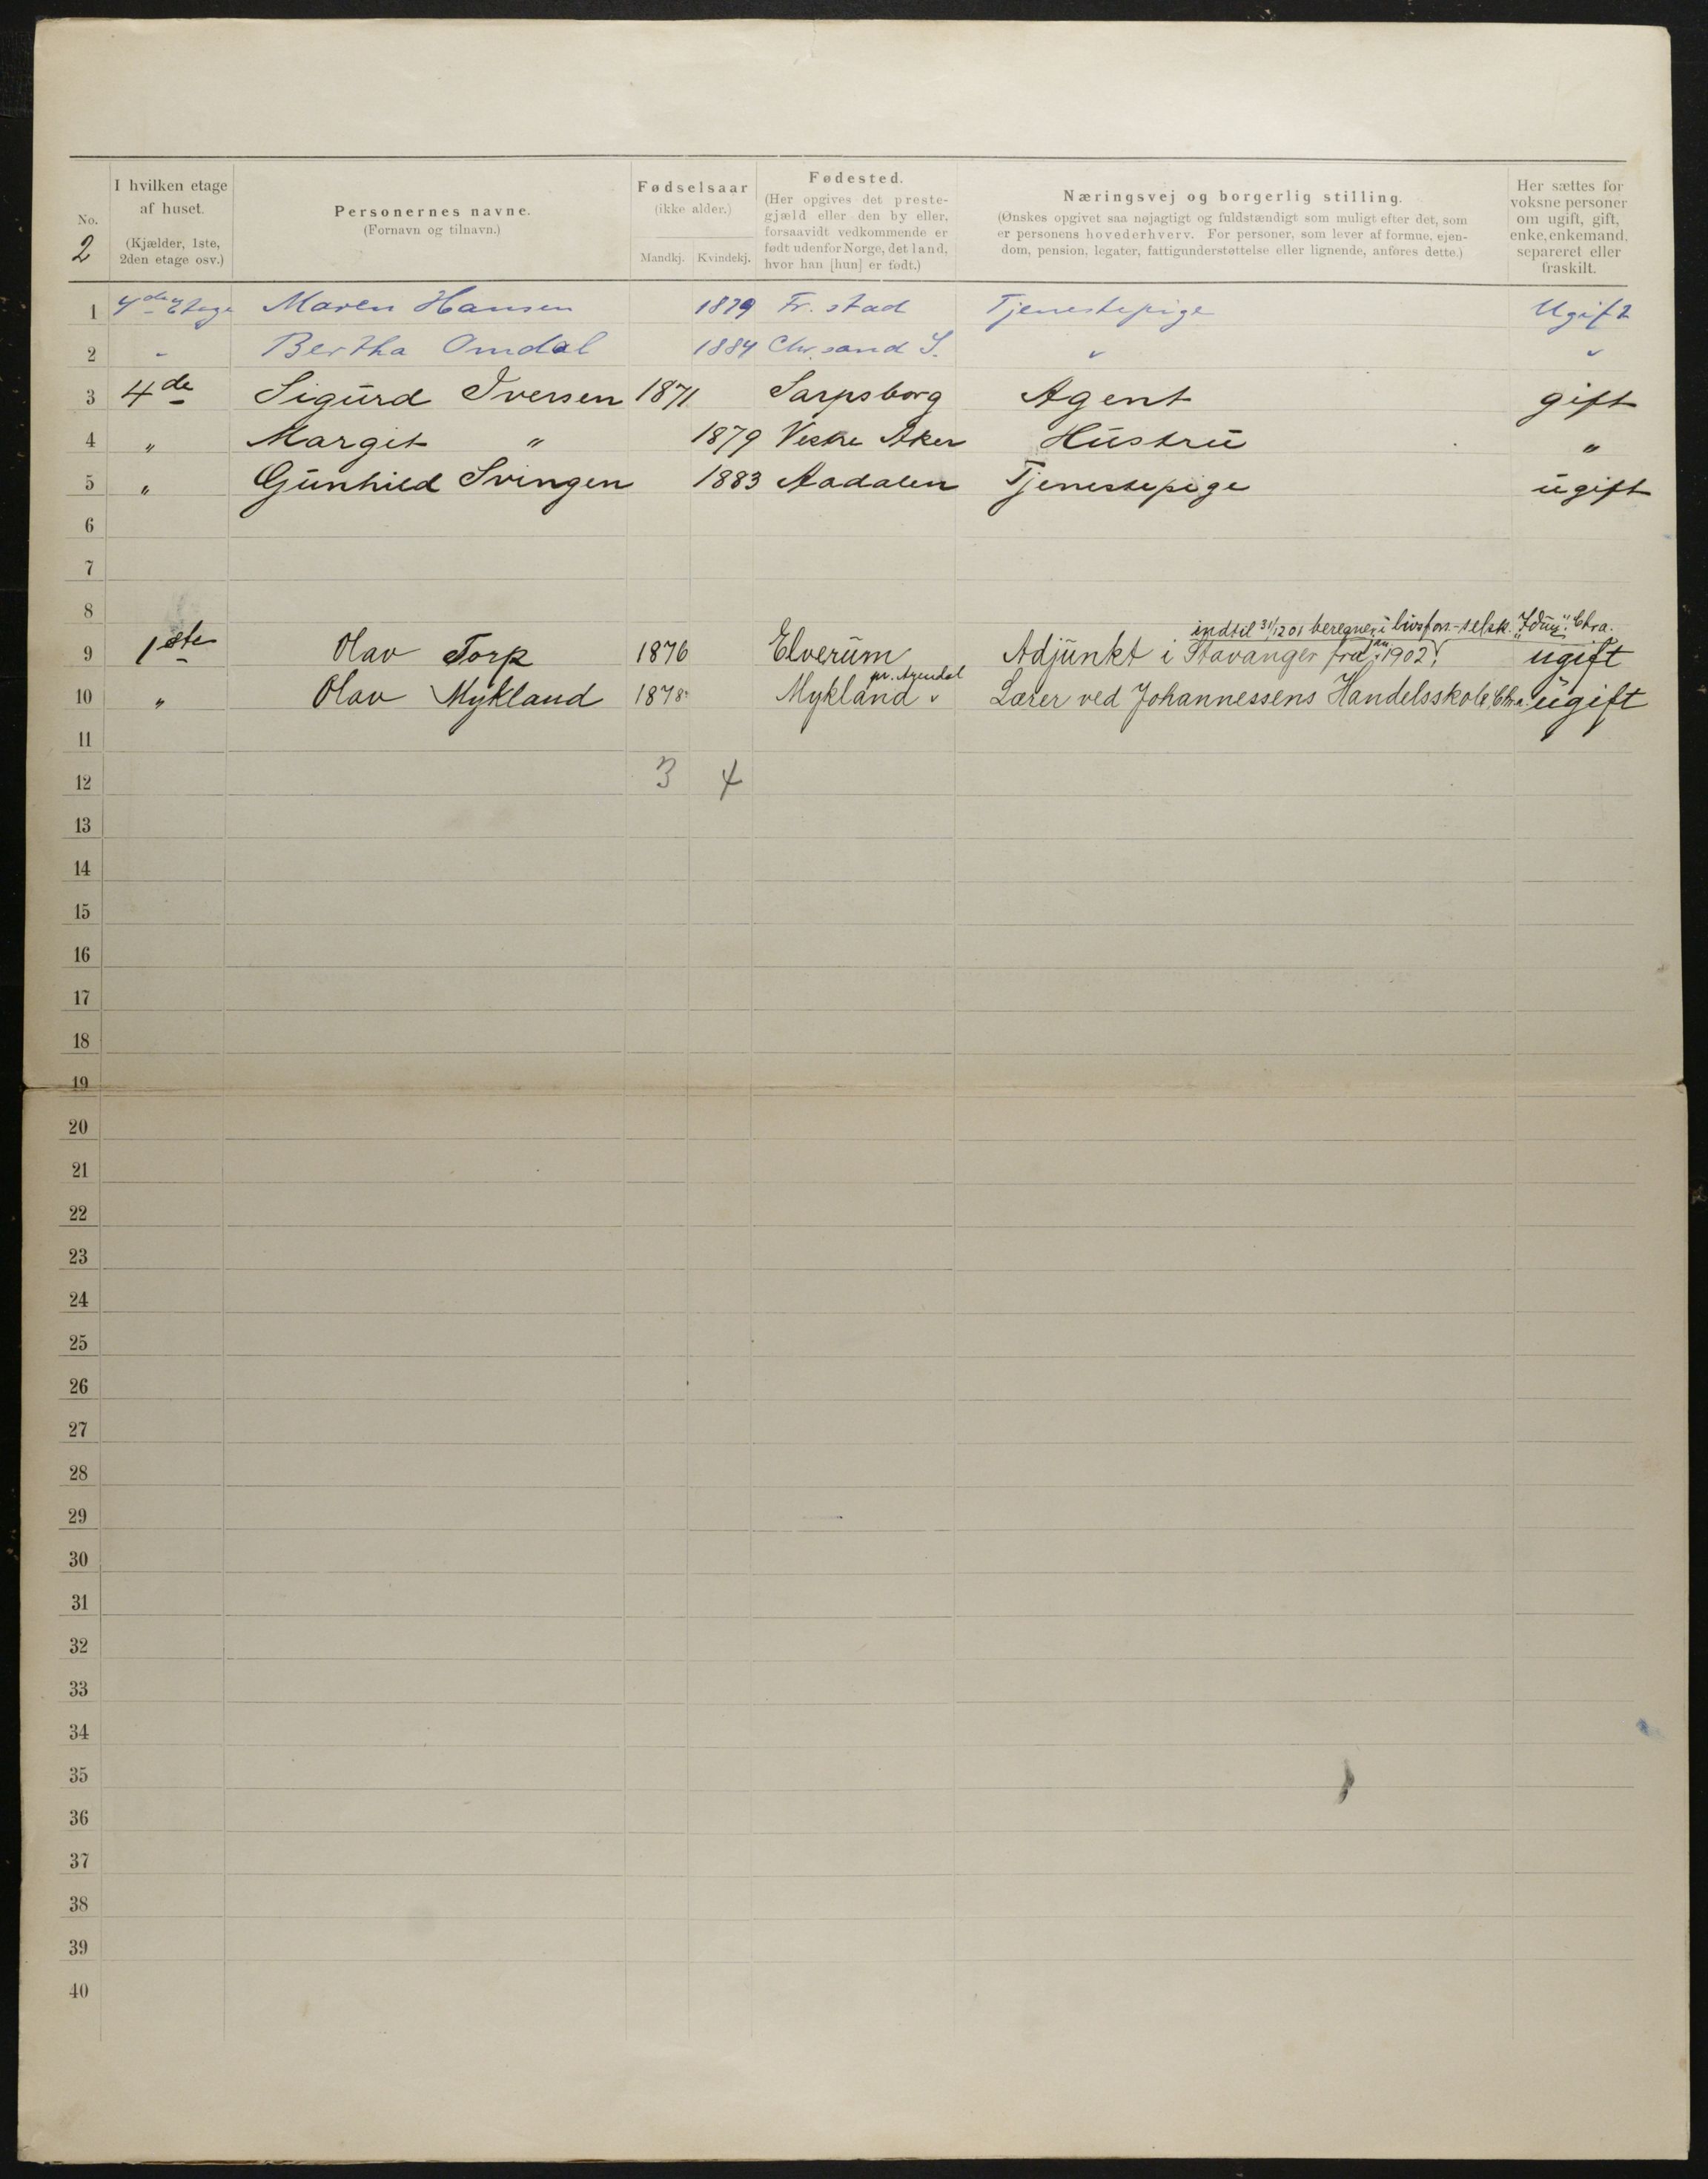 No.
2
I hvilken etage
af huset.
(Kjælder, 1ste,
2den etage osv.)
Personernes navne.
(Fornavn og tilnavn.)
Fødselsaar
(ikke alder.)
Mandkj. Kvindekj.
Fødested.
(Her opgives det preste-
gjæld eller den by eller,
forsaavidt vedkommende er
født udenfor Norge, det land,
hvor han [hun] er født.)
Næringsvej og borgerlig stilling.
(Ønskes opgivet saa nøjagtigt og fuldstændigt som muligt efter det, som
er personens hovederhverv. For personer, som lever af formue, ejen-
dom, pension, legater, fattigunderstøttelse eller lignende, anføres dette.)
Her sættes for
voksne personer
om ugift, gift,
enke, enkemand,
separeret eller
fraskilt.
1 4de Etage Maren Hansen 1879 Fr. stad Tjenestepige Ugift
2 " Bertha Omdal 1884 Chr.sand S. " "
3 4de Sigurd Iversen 1871 Sarpsborg Agent gift
4 " Margit " 1879 Vestre Aker Hustru "
5 " Gunhild Svingen 1883 Aadalen Tjenestepige ugift
6
7
8
indtil 31/12 01 beregner i livsfors.-selsk. "Idun". Chra.
9 1ste Olav Torp 1876 Elverum Adjunkt i Stavanger fra jan. 1902. ugift
pr. Arendal
10 " Olav Mykland 1878 Mykland Lærer ved Johannessens Handelsskole, Chra. ugift
11
12 3 4
13
14
15
16
17
18
19
20
21
22
23
24
25
26
27
28
29
30
31
32
33
34
35
36
37
38
39
40